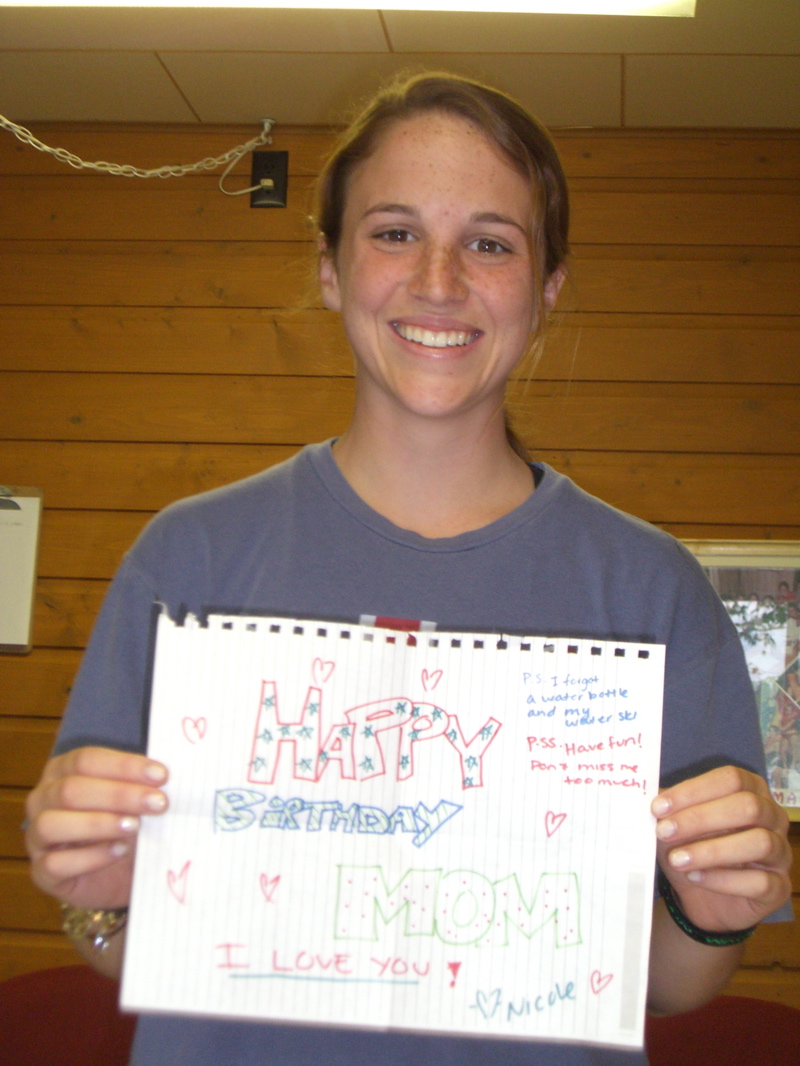 HAPPY
BIRTHDAY
MOM
I LOVE YOU !
Nicole
P.S. I forgot
a water bottle
and my
water ski
P.SS. Have fun!
Don't miss me
too much!
MA